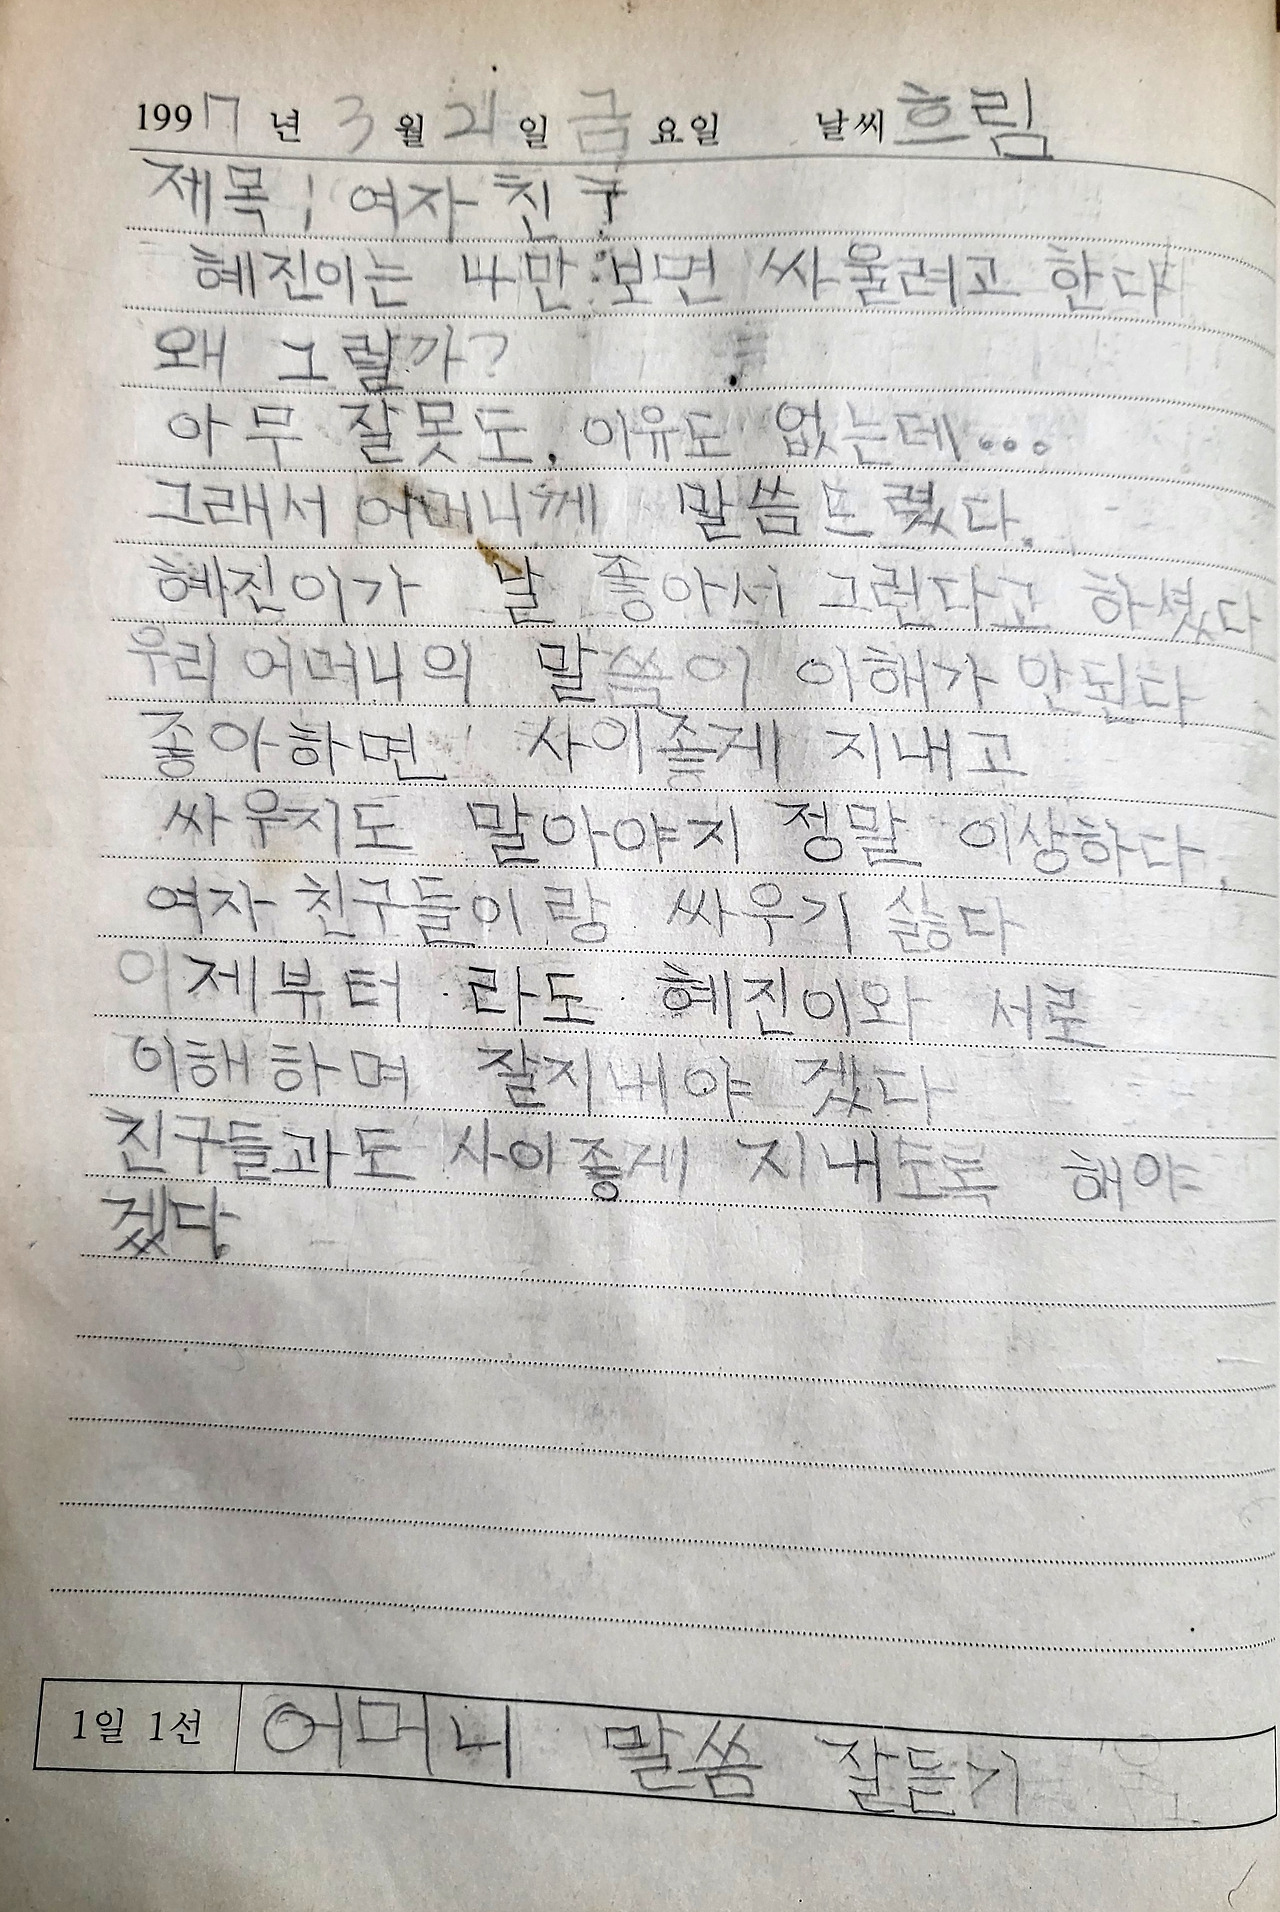 1997년 3월 21일 금요일 날씨 흐림
제목; 여자 친구
혜진이는 나만 보면 싸울려고 한다
왜 그럴까?
아무 잘못도, 이유도 없는데...
그래서 어머니께 말씀드렸다.
혜진이가 날 좋아서 그런다고 하셨다
우리 어머니의 말씀이 이해가 안된다
좋아하면 사이좋게 지내고
싸우지도 말아야지 정말 이상하다.
여자 친구들이랑 싸우기 싫다
이제부터 라도 혜진이와 서로
이해하며 잘지내야 겠다
친구들과도 사이좋게 지내도록 해야
겠다.
1일 1선 어머니 말씀 잘듣기